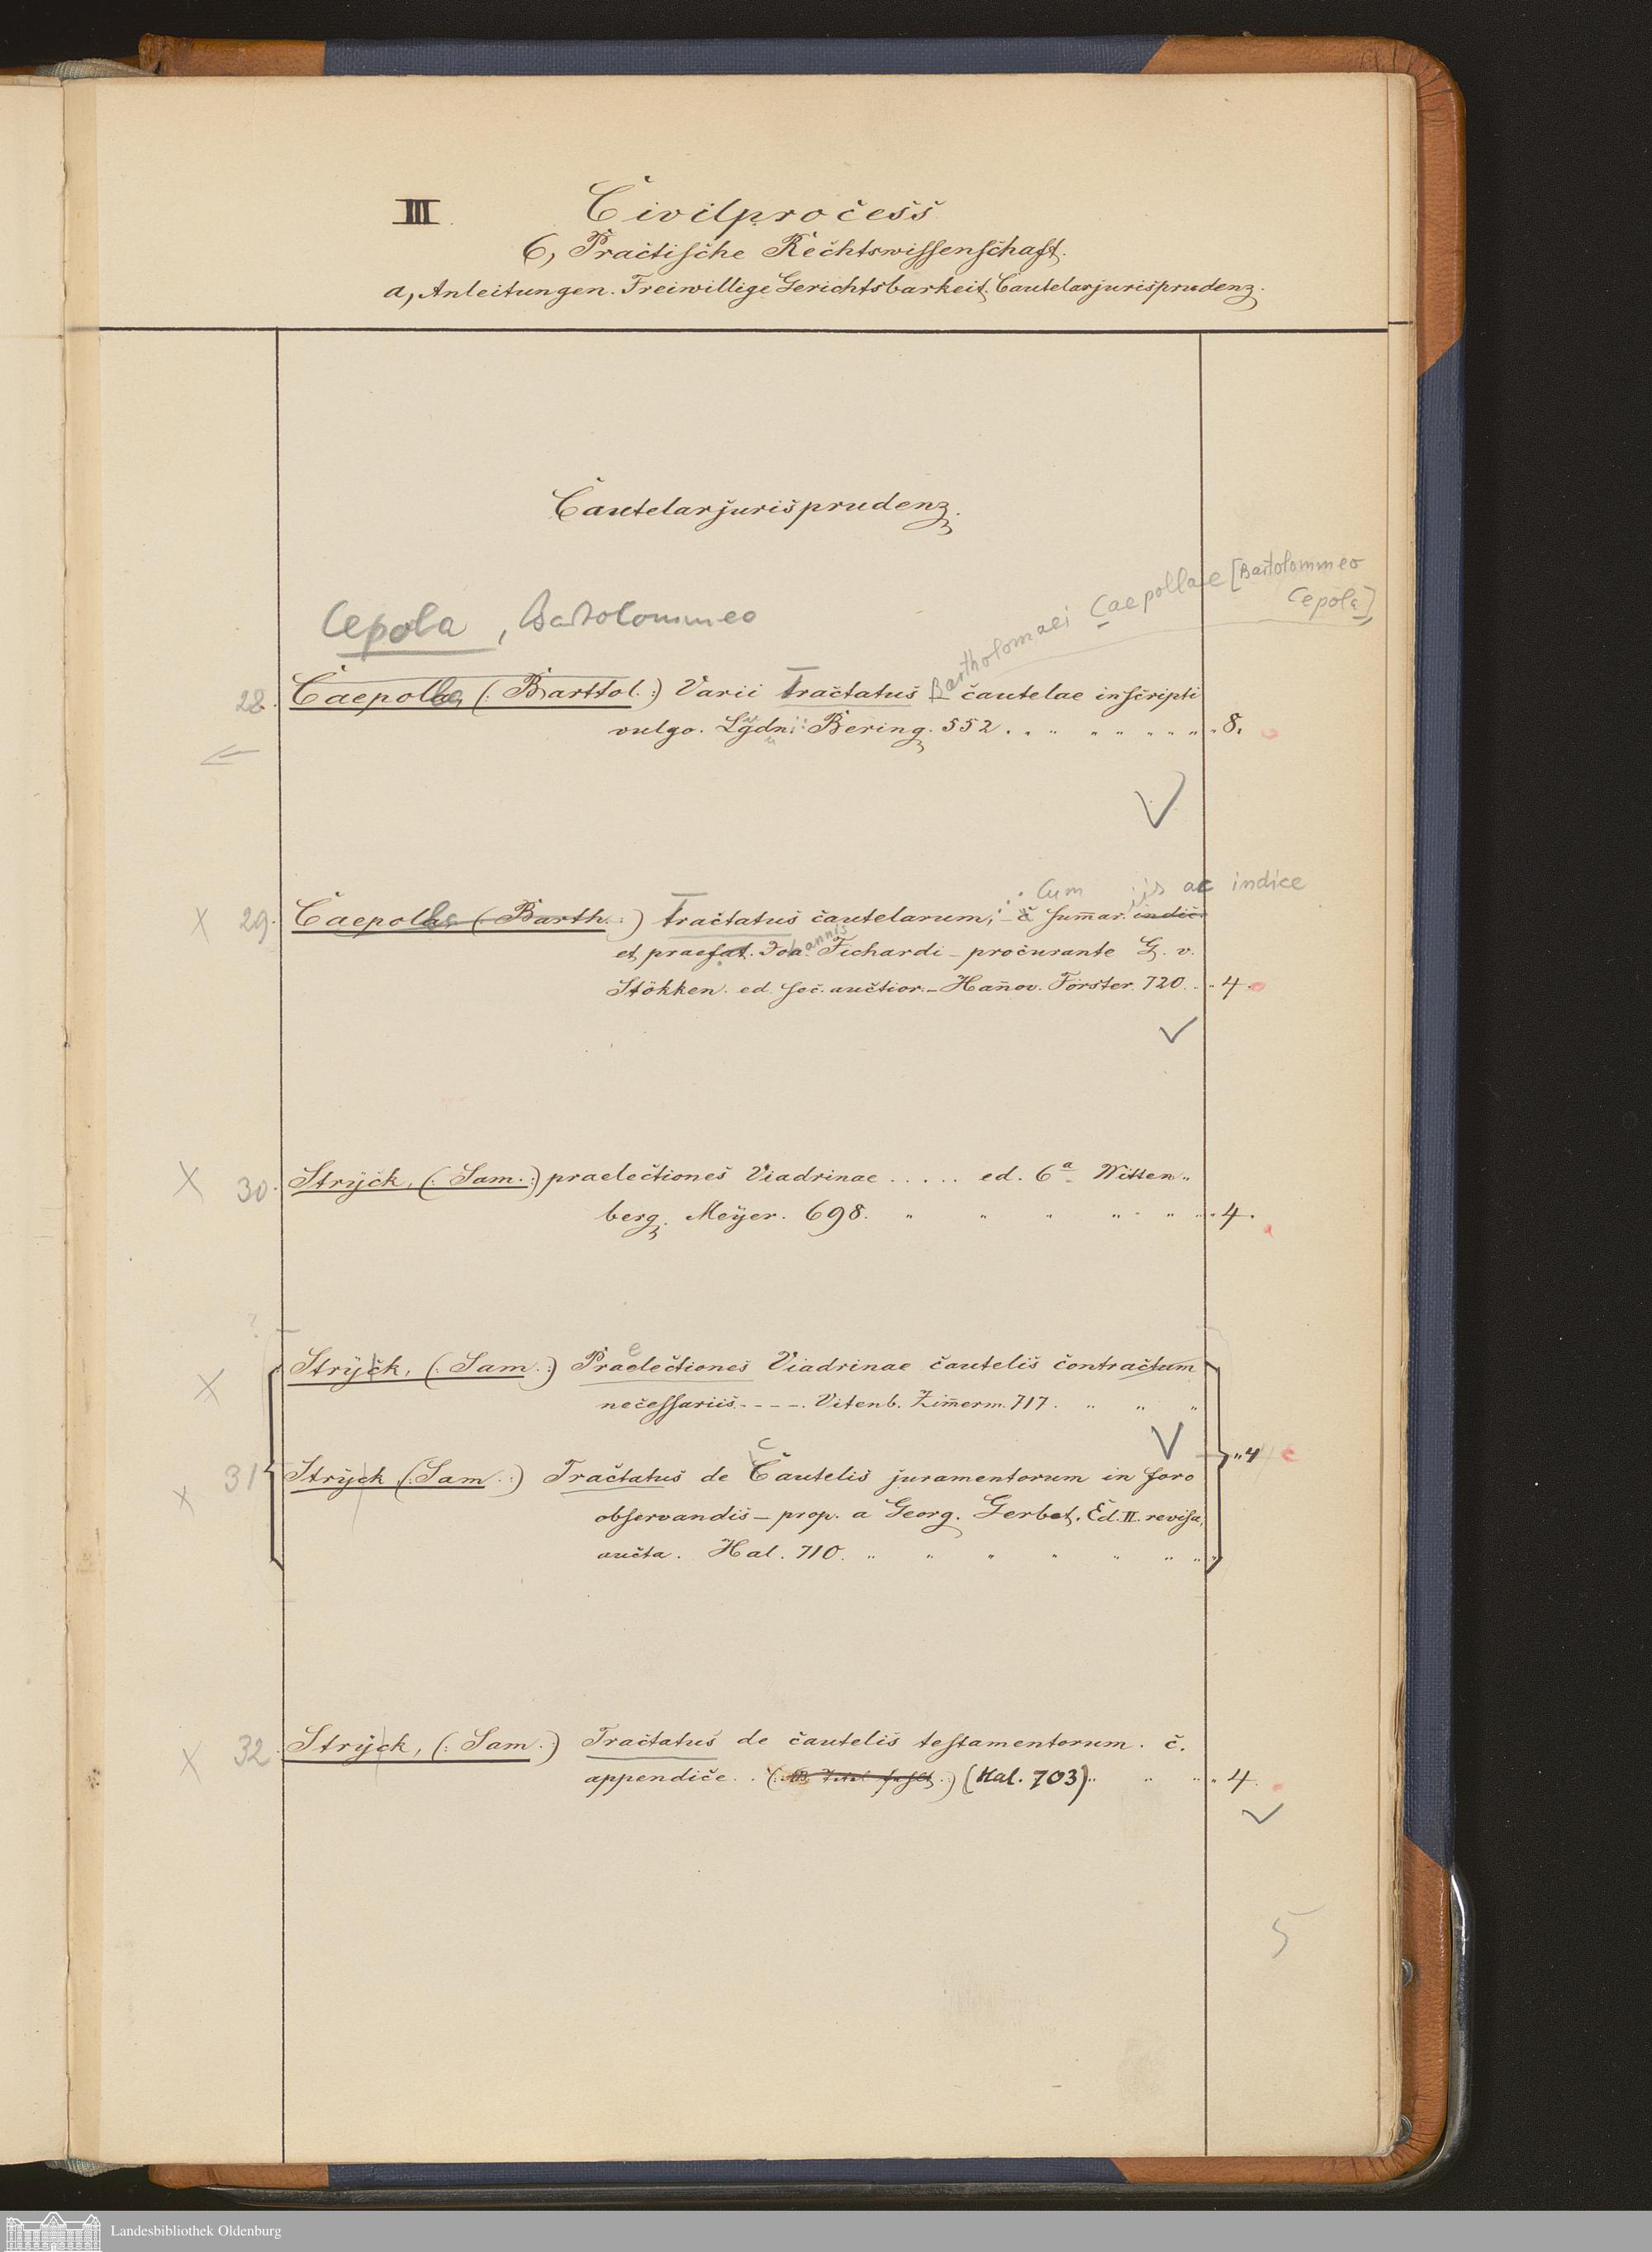 III. Civilprocess
6, Practische Rechtswissenschaft.
a, Anleitungen. Freiwillige Gerichtsbarkeit. Cautelarjurisprudenz.
Cautelarjurisprudenz.
Bartholomaei Caepollae [Bartolommeo
Cepola]
Cepola, Bartolommeo
28. Caepolla (: Barttol. :) Varii Tractatus cautelae inscripti
vulgo. Lgdni: Bering. 552 . . " " " " " " 8.
: Cum iis ac indice
X 29. Caepolla (: Barth. :) Tractatus cautelarum, c sum̄ar. indic.
et praefat. Johannis Fichardi – procurante G. v.
Stökken. ed. sec. auctior. – Han̄ov. Förster. 720. . . 4.
X 30. Stryck, (: Sam. :) praelectiones Viadrinae . . . . . ed. 6a Witten„
berg. Meÿer. 698. " " " " " " " 4.
?
X Strÿck, (: Sam. :) Praelectiones Viadrinae cautelis contractum
necessariis. - - - -. Vitenb. Zim̄erm. 717. " " "
31 „4
X Strÿck (: Sam. :) Tractatus de Cautelis juramentorum in foro
observandis – prop. a Georg. Gerbet. Ed. II. revisa,
aucta. Hal. 710. " " " " " " "
X 32. Strÿck, (: Sam. :) Tractatus de cautelis testamentorum. c.
appendice. . (: Titel fehlt :) (Hal. 703) " " " 4.
5
Landesbibliothek Oldenburg